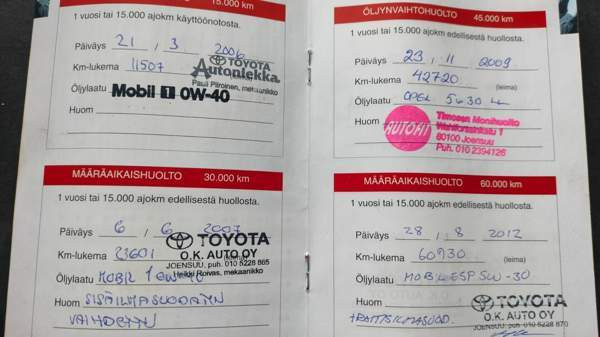 15.000 km
1 vuosi tai 15.000 ajokm käyttöönotosta.
Päiväys 21 / 3 2006
Km-lukema 11507
TOYOTA
Autoniekka
Pauli Piiroinen, mekaanikko
Öljylaatu Mobil 1 0W-40
Huom
MÄÄRÄAIKAISHUOLTO 30.000 km
1 vuosi tai 15.000 ajokm edellisestä huollosta.
Päiväys 6 / 6 2007
Km-lukema 23601 (leima)
TOYOTA
O.K. AUTO OY
JOENSUU, puh. 010 5228 865
Heikki Roivas, mekaanikko
Öljylaatu MOBIL 1 0W-40
Huom SISÄILMASUODATIN
VAIHDETTU
ÖLJYNVAIHTOHUOLTO 45.000 km
1 vuosi tai 15.000 ajokm edellisestä huollosta.
Päiväys 23 / 11 2009
Km-lukema 42720 (leima)
Öljylaatu OPEL 5W30
Huom
AUTOFIT
Timosen Monihuolto
80100 Joensuu
Puh. 010 2394126
MÄÄRÄAIKAISHUOLTO 60.000 km
1 vuosi tai 15.000 ajokm edellisestä huollosta.
Päiväys 28 / 8 2012
Km-lukema 60930 (leima)
Öljylaatu MOBIL ESP 5W-30
Huom RAITISILMASUOD.
TOYOTA
O.K. AUTO OY
JOENSUU, puh. 010 5228 870